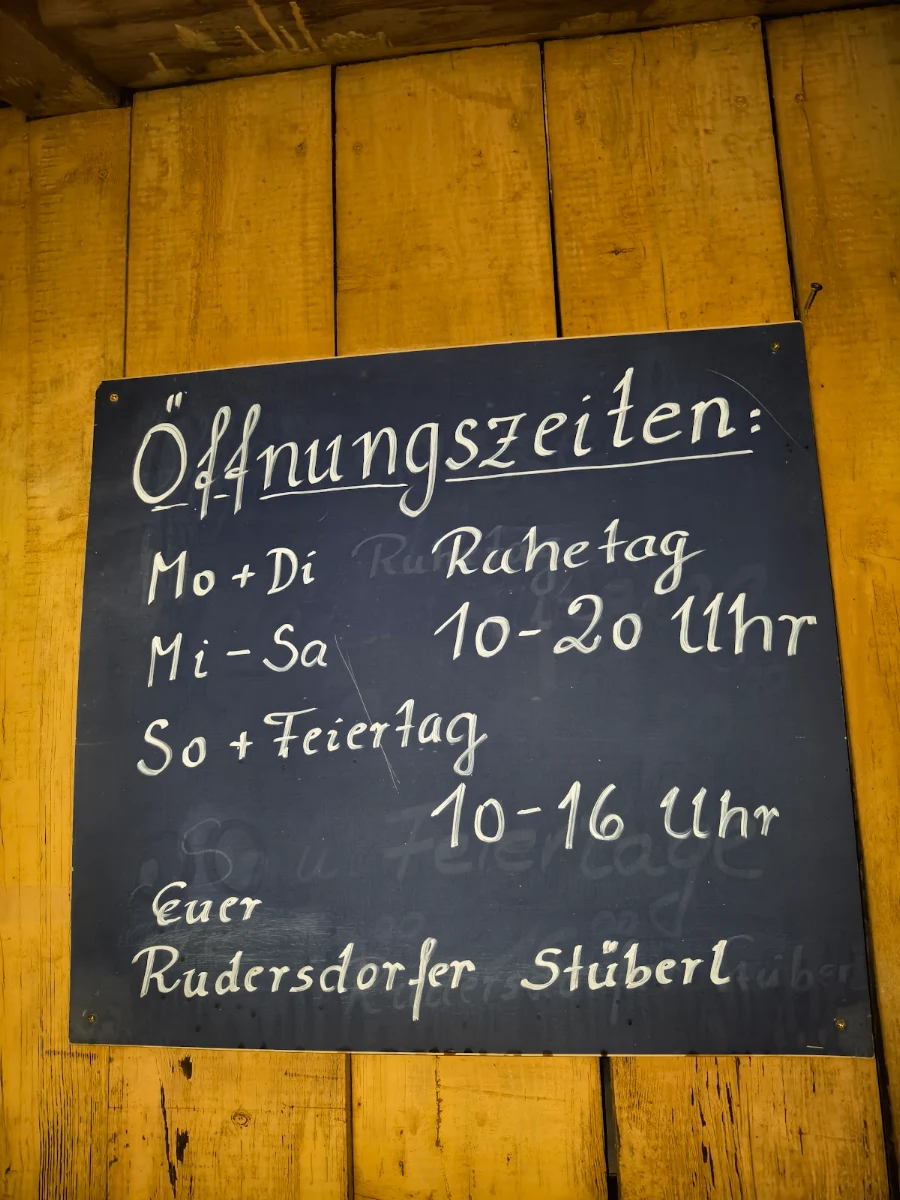 Öffnungszeiten:
Mo + Di Ruhetag
Mi - Sa 10-20 Uhr
So + Feiertag
10-16 Uhr
Euer
Rudersdorfer Stüberl